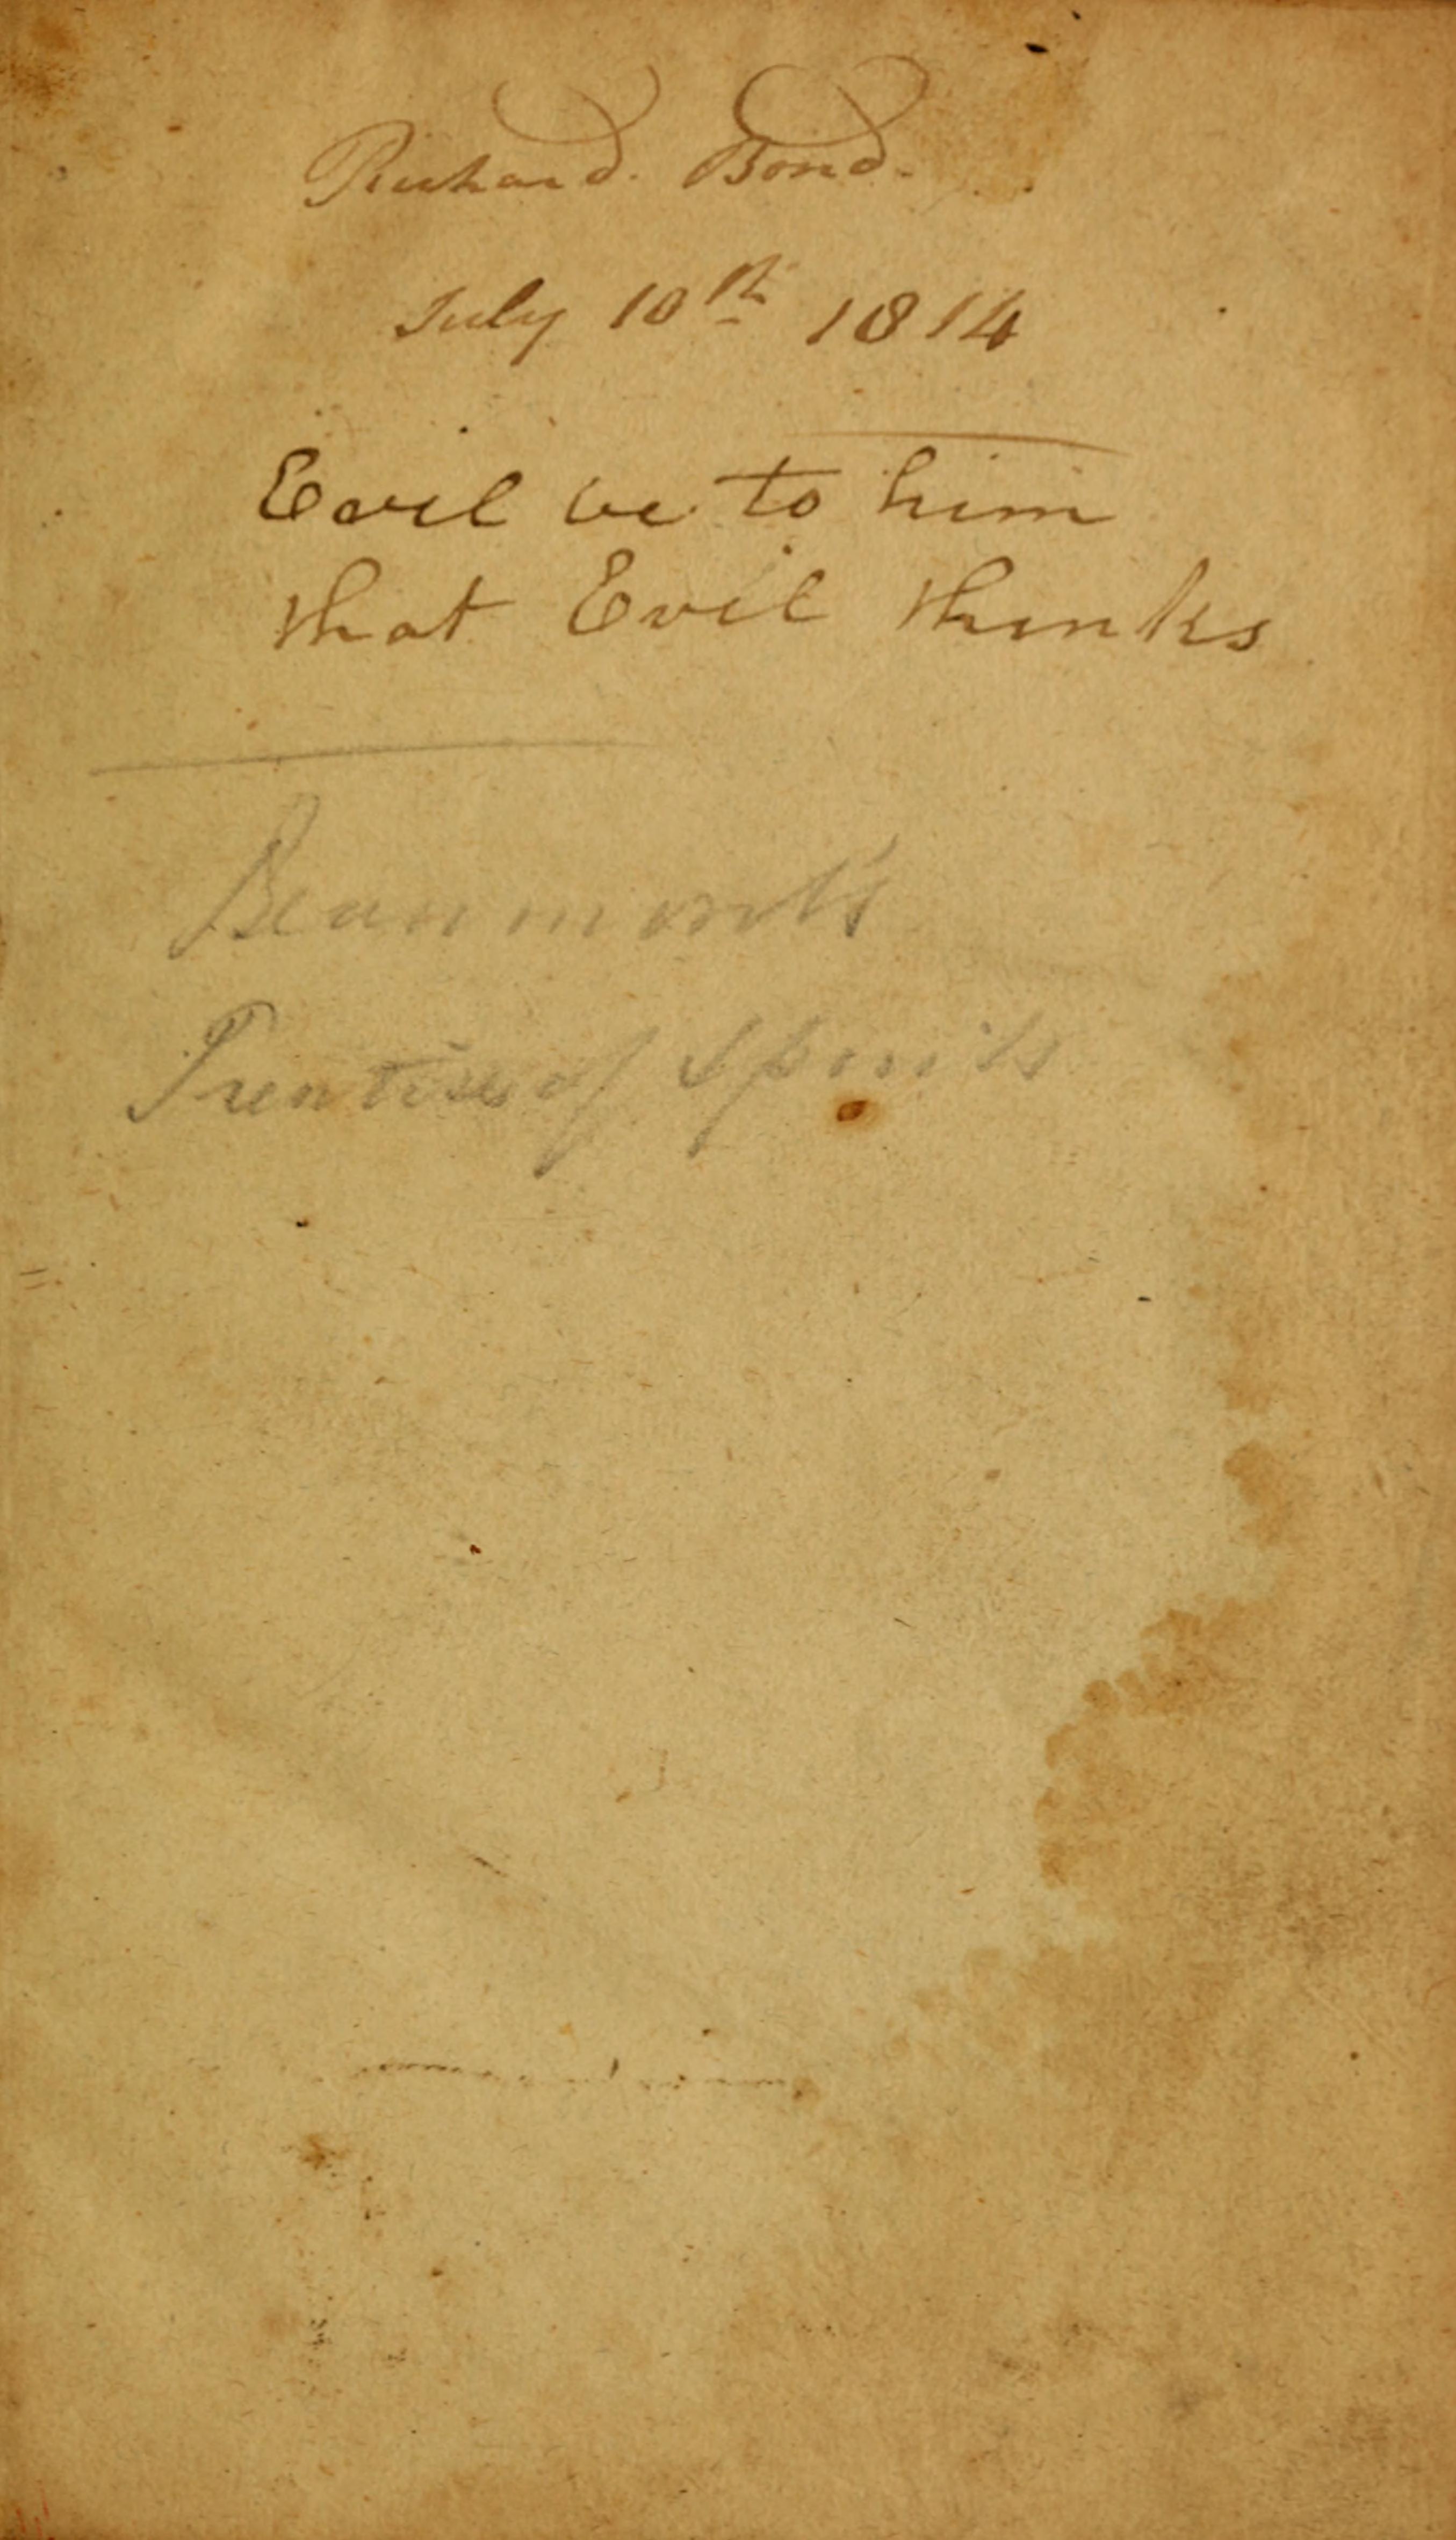 Richard. Bond.
July 10th 1814
Evil be to him
that Evil thinks
Beaumont's
Treatise of Spirits